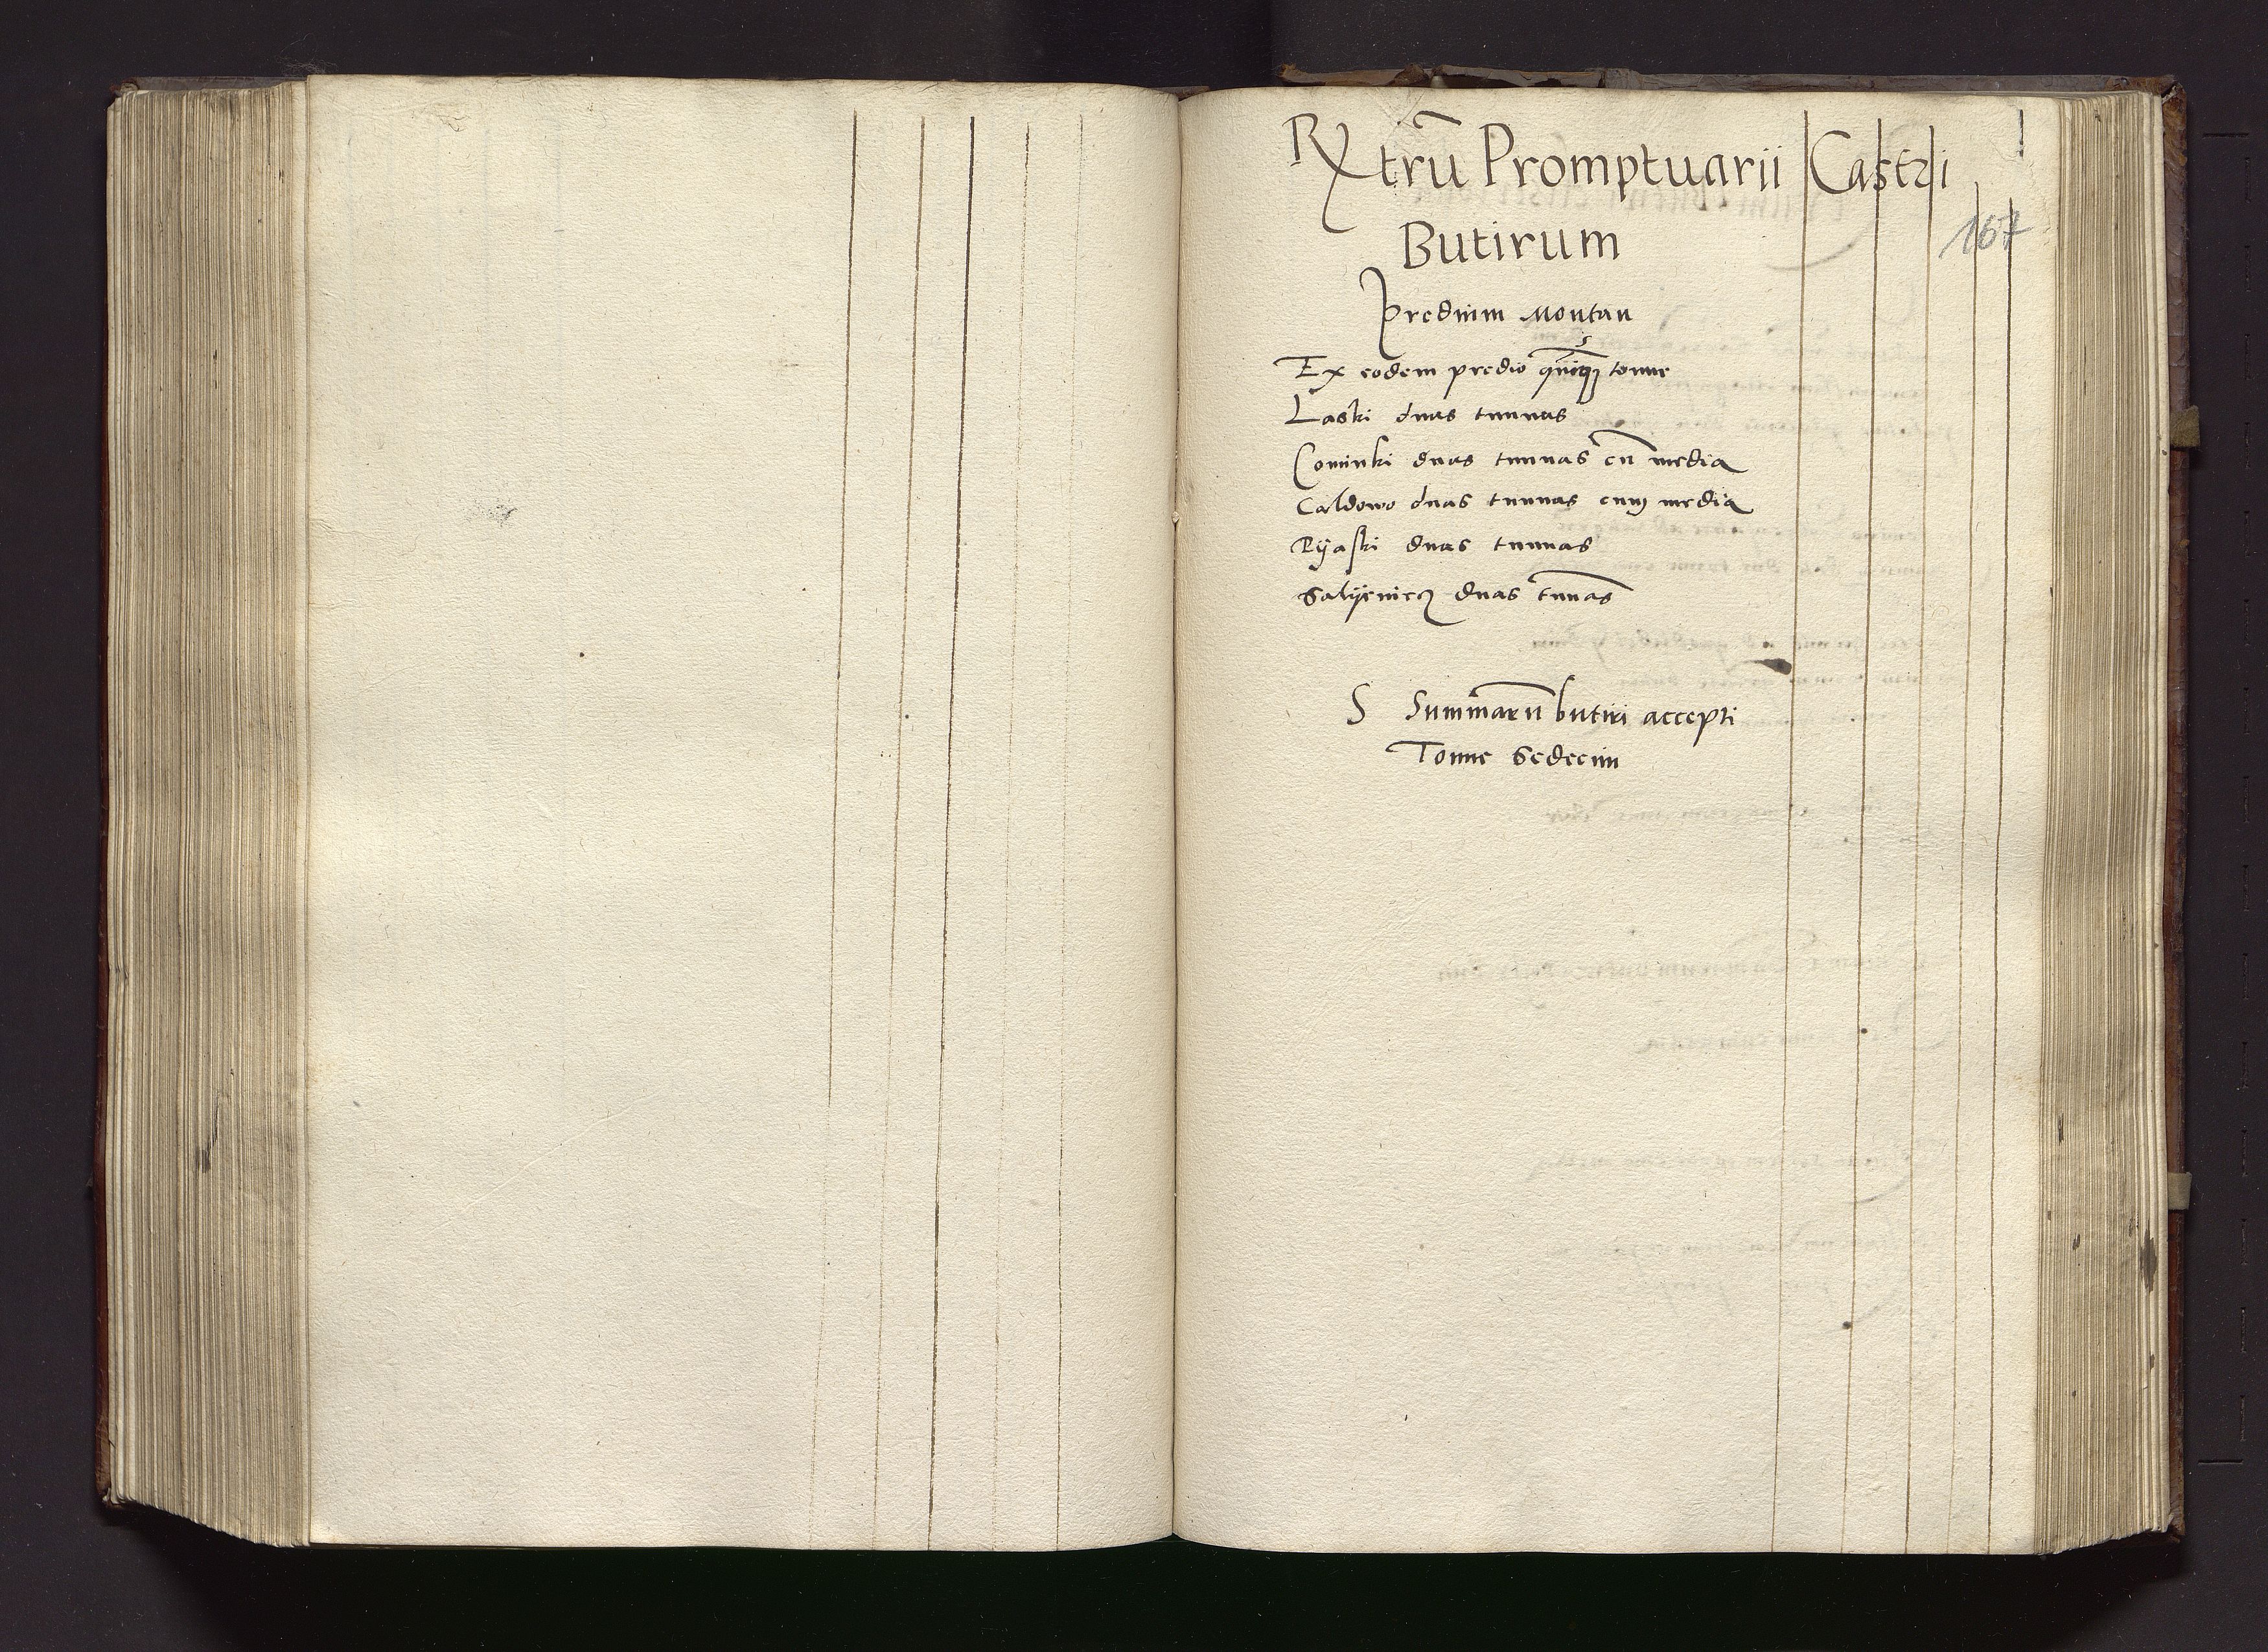 Rxtrū Promptuarii Castri
167
Butirum
Predium Montan
Ex eodem predio quinqȝ tonne
Laski duas tunnas
Cominki duas tunnas cū media
Caldowo duas tunnas cum media
Pijaski duas tunnas
Salijenicz duas tunnas
S Summarū butiri accepti
Tonne Sedecim